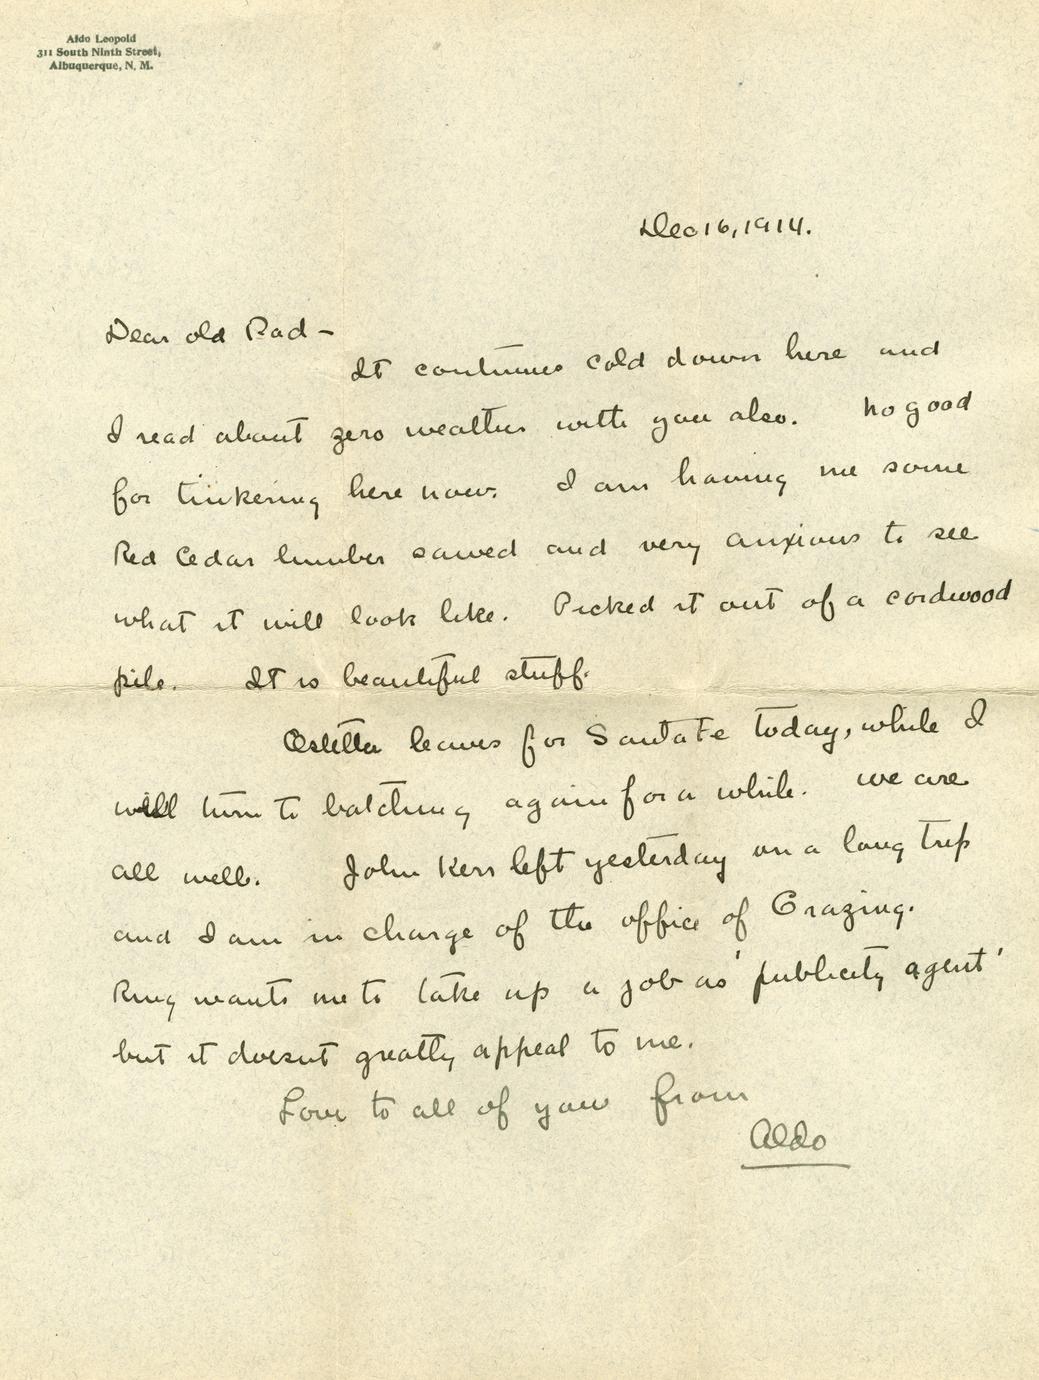 Aldo Leopold
311 South Ninth Street,
Albuquerque, N. M.
Dec 16, 1914.
Dear old Dad –
It continues cold down here and
I read about zero weather with you also. No good
for tinkering here now. I am having me some
Red Cedar lumber sawed and very anxious to see
what it will look like. Picked it out of a cordwood
pile. It is beautiful stuff.
Estella leaves for Santa Fe today, while I
will turn to batching again for a while. We are
all well. John Kerr left yesterday on a long trip
and I am in charge of the office of Grazing.
Ring wants me to take up a job as 'publicity agent'
but it doesnt greatly appeal to me.
Love to all of you from
Aldo